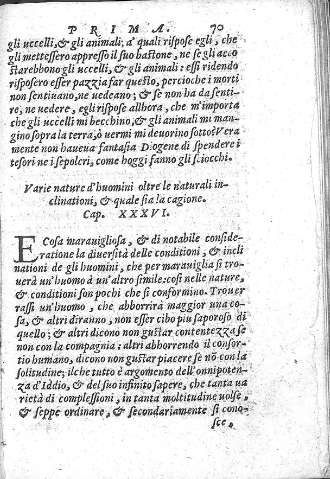 PRIMA. 70
gli uccelli, & gli animali, a' quali rispose egli, che
gli mettessero appresso il suo bastone, ne se gli acco
starebbono gli uccelli, & gli animali: essi ridendo
risposero esser pazzia far questo, percioche i morti
non sentiuano, ne uedeano; & se non ha da senti-
re, ne uedere, egli rispose allhora, che m'importa
che gli uccelli mi becchino, & gli animali mi man-
gino sopra la terra, ò uermi mi deuorino sotto? Vera
mente non haueua fantasia Diogene di spendere i
tesori ne i sepolcri, come hoggi fanno gli sciocchi.
Varie nature d'huomini oltre le naturali in-
clinationi, & quale sia la cagione.
Cap. XXXVI.
E Cosa marauigliosa, & di notabile conside-
ratione la diuersità delle conditioni, & incli
nationi de gli huomini, che per marauiglia si tro-
uerà un'huomo à un'altro simile: così nelle nature,
& conditioni son pochi che si conformino. Trouer
rassi un'huomo, che abborrirà maggior una co-
sa, & altri diranno, non esser cibo piu saporoso di
quello; & altri dicono non gustar contentezza se
non con la compagnia: altri abborrendo il consor-
tio humano, dicono non gustar piacere se nō con la
solitudine; il che tutto è argomento dell'onnipoten-
za d'Iddio, & del suo infinito sapere, che tanta ua
rietà di complessioni, in tanta moltitudine uolse,
& seppe ordinare, & secondariamente si cono-
sce.